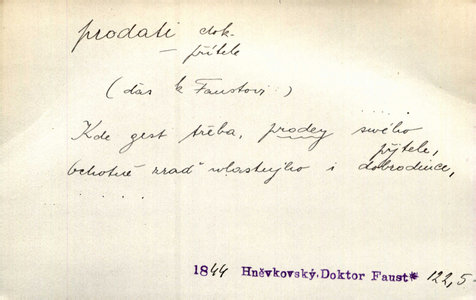 prodati dok.
— přítele
(ďas k Faustovi:)
Kde gest třeba, prodey swého
přjtele,
ochotně zraď wlastnjho i dobrodince,
. . . . .
1844 Hněvkovský, Doktor Faust* 122,5